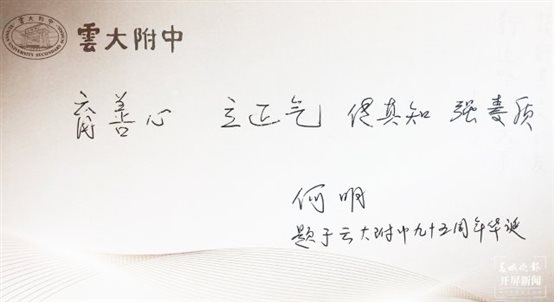 雲大附中
育善心 立正气 促真知 强素质
何明
题于云大附中九十五周年华诞
春城晚报
开屏新闻